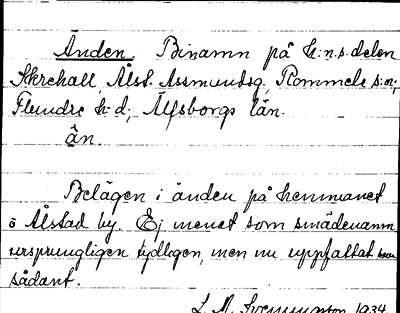 Änden. Binamn på h:n.s.delen
Skrehall, Ålst. Assmundsg, Rommele s:n;
Flundre h:d; Älfsborgs län.
än.
Belägen i änden på hemmanet
o Ålstad by. Ej menet som smädenamn
ursprungligen tydligen, men nu uppfattat som
sådant.
L. M. Svenungsson 1934.